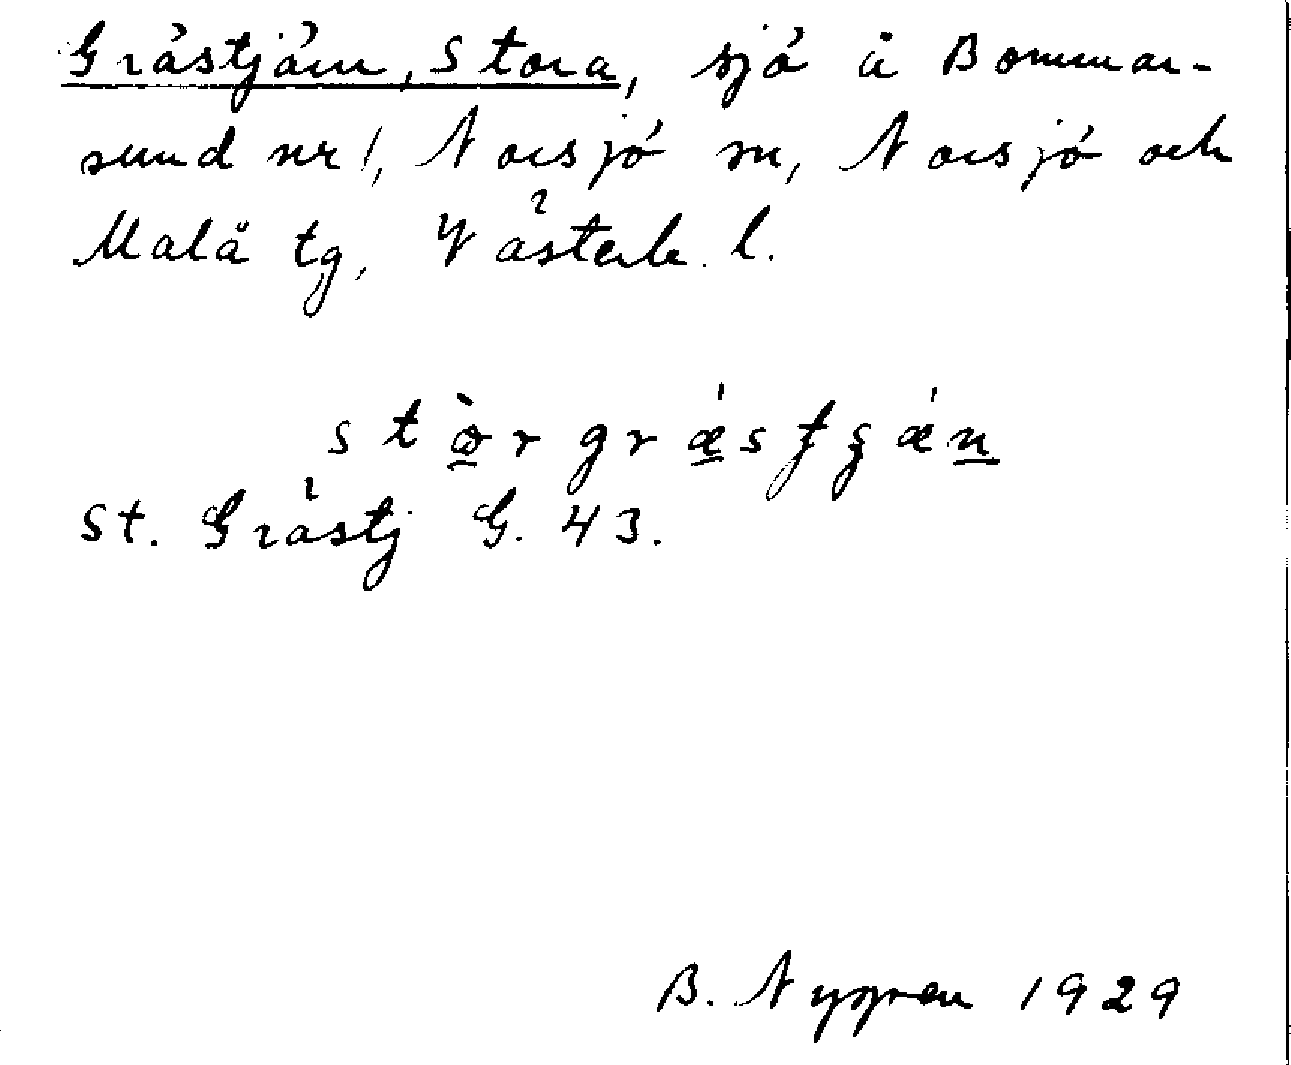 Grästjärn, Stora, sjö å Bommar-
sund nr 1, Norsjö sn, Norsjö och
Malå tg, Västerb. l.
St. Grästj G. 43.
B. Nygren 1929